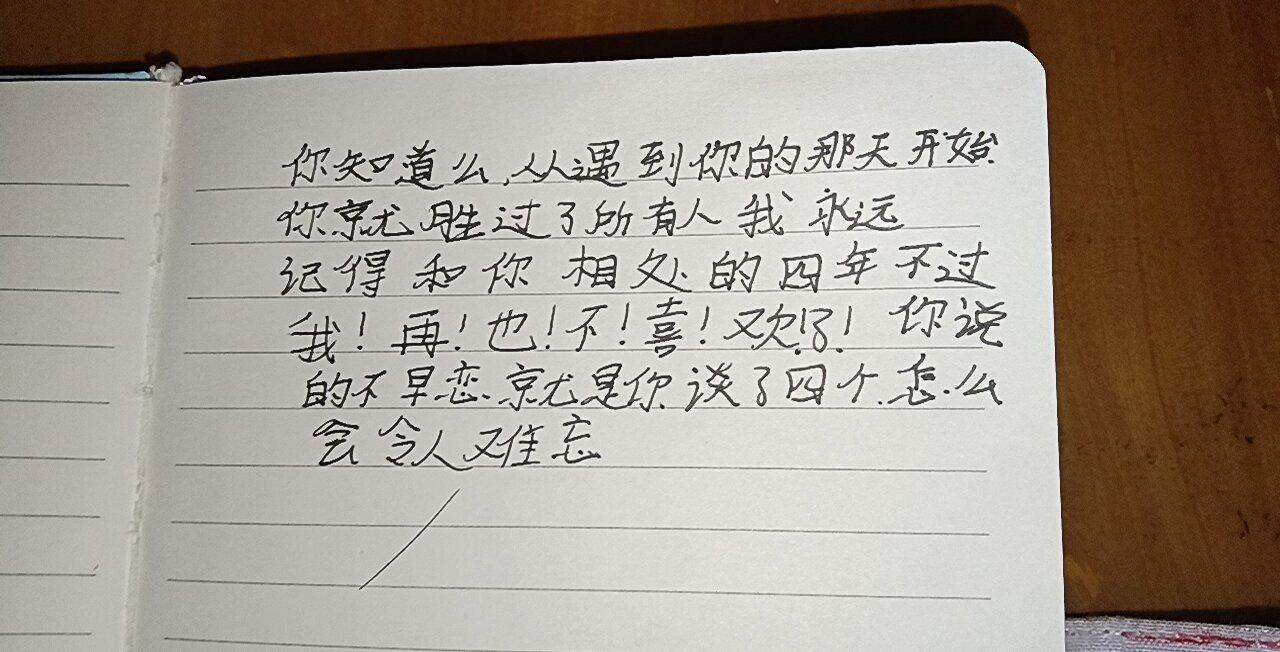 你知道么,从遇到你的那天开始
你就胜过了所有人我永远
记得和你相处的四年不过
我!再!也!不!喜!欢!了!你说
的不早恋.就是你谈了四个.怎么
会令人难忘